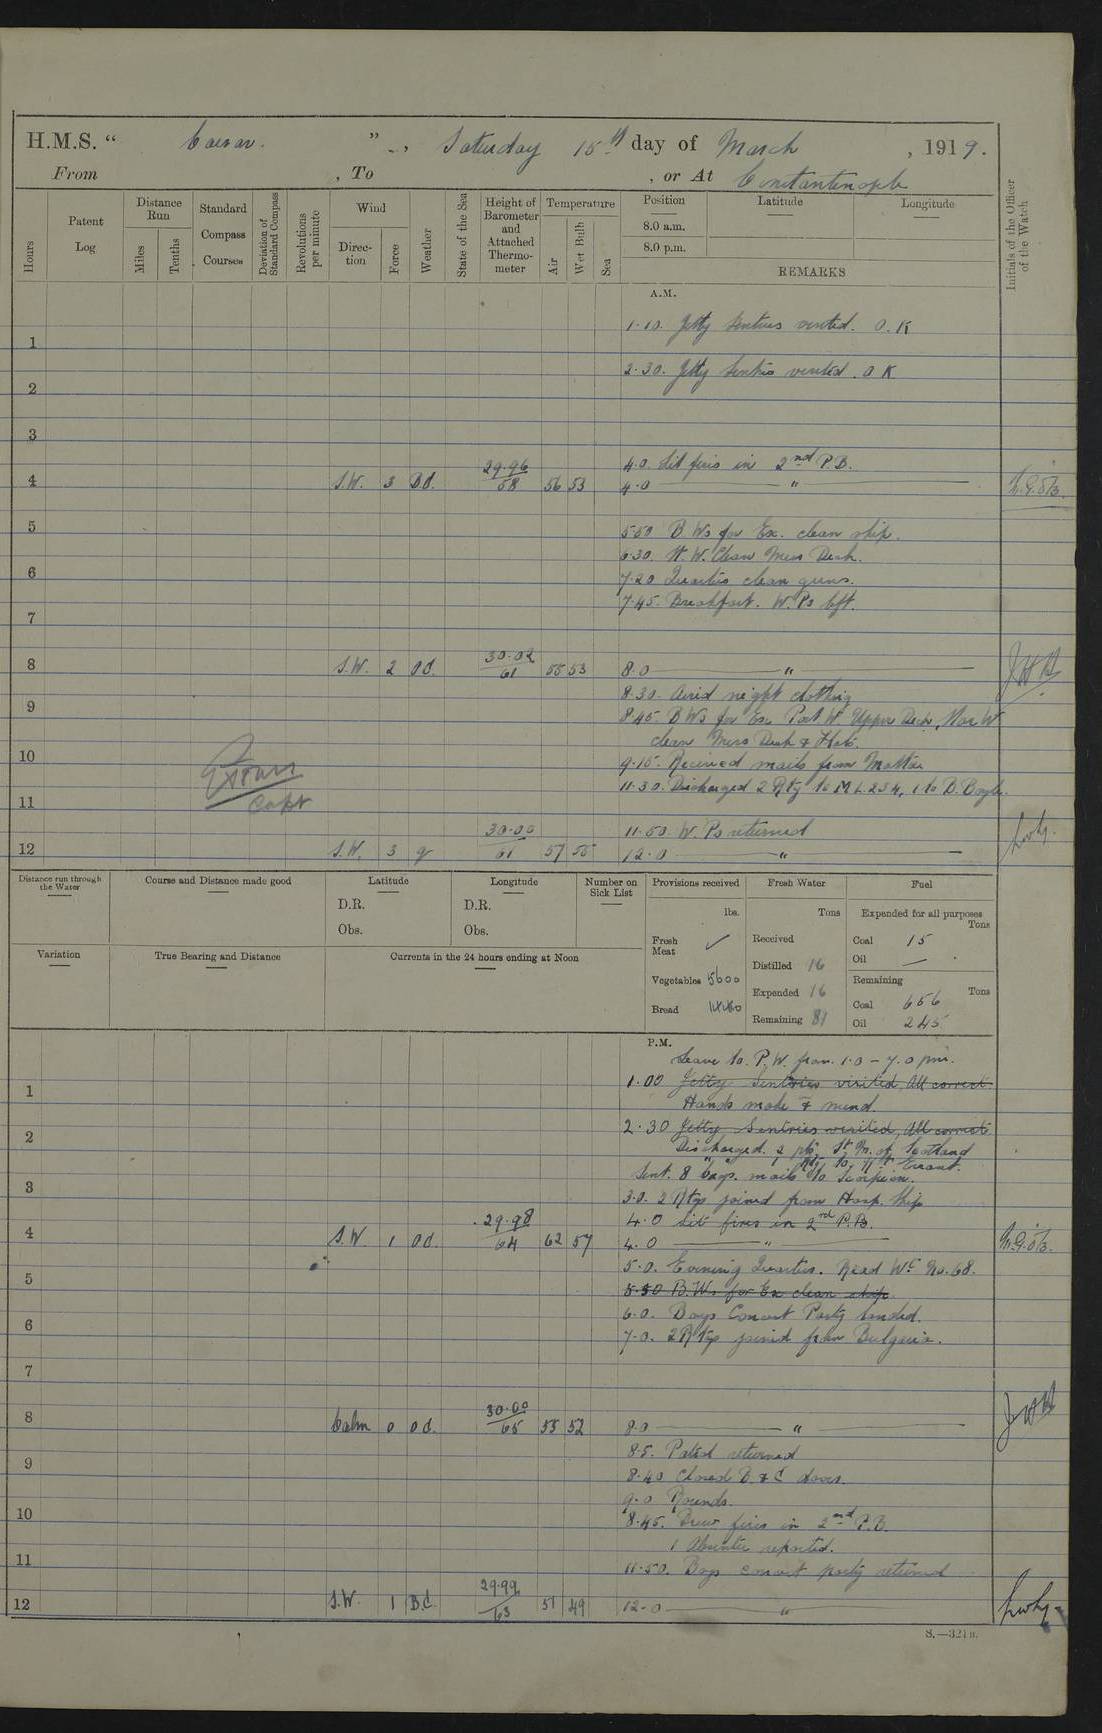 H.M.S. “ Caesar. ” Saturday 15th day of March , 1919.
From , To , or At Constantinople
Hours
Patent Log
Distance Run
Miles
Tenths
Standard Compass Courses
Deviation of Standard Compass
Revolutions per minute
Wind
Direc-tion
Force
Weather
State of the Sea
Height of Barometer and Attached Thermo-meter
Temperature
Air
Wet Bulb
Sea
Position
8.0 a.m.
8.0 p.m.
Latitude
Longitude
REMARKS
Initials of the Officer of the Watch
A.M.
1.10. Jetty Sentries visited. O.K
1
2.30. Jetty Sentries visited. O K
2
3
4.0. Lit fires in 2nd P.B.
4 S.W. 3 Od. 29.96 58 56 53 4.0 "
5
5.50 B Ws for Ex. clean ship.
6.30. H. W. Clean Mess Deck.
6
7.20 Quarters clean guns.
7.45. Breakfast. W. Ps left.
7
8 S.W. 2 Od. 30.02 61 55 53 8.0 "
8.30. Aired night clothing
9
8.45. B Ws for Ex. Port W. Upper Deck, Star W
clean Mess Deck & Flats.
10
9.15. Received mails from Malta
11.30. Discharged 2 Rtgs to M L. 234, 1 to D. Boyle.
Capt
11
11.50 W. Ps returned
12 S.W. 3 g 30.00 61 57 55 12.0 "
Distance run through the Water
Course and Distance made good
Latitude
D.R.
Obs.
Longitude
D.R.
Obs.
Number on Sick List
Provisions received
lbs.
Fresh Meat ✓
Vegetables 5600
Bread
Fresh Water
Tons
Received
Distilled 16
Expended 16
Remaining 81
Fuel
Expended for all purposes
Tons
Coal 15
Oil —
Remaining
Tons
Coal 656
Oil 245
Variation
True Bearing and Distance
Currents in the 24 hours ending at Noon
P.M.
Leave to. P. W. from. 1.0 – 7.0 pm.
1.00 Jetty Sentries visited, All correct.
1
Hands make & mend.
2.30 Jetty Sentries visited, All correct
2
Discharged. 2 rtgs St. Mr. of Scotland
" " 1 Rtg to Kt Errant.
Sent. 8 bags. mails to Scorpion.
3
3.0. 2 Rtgs joined from Hosp. Ship
4.0 Lit fires in 2nd P.B.
4 S.W. 1 Od. 29.98 64 62 57 4.0 "
5.0. Evening Quarters. Read Wt No. 68.
5
5.50 B.Ws for Ex clean ship
6.0. Boys Concert Party landed.
6
7.0. 2 Rtgs joined from Bulgaria.
7
8 Calm 0 Od. 30.00 65 55 52 8.0 "
8.5. Patrol returned
9
8.40 Closed B. & C doors.
9.0 Rounds.
10
8.45. Drew fires in 2nd P.B.
1 Absentee reported.
11
11.50. Boys concert party returned
12 S.W. 1 B.C. 29.99 63 51 49 12.0 "
S.—321B.